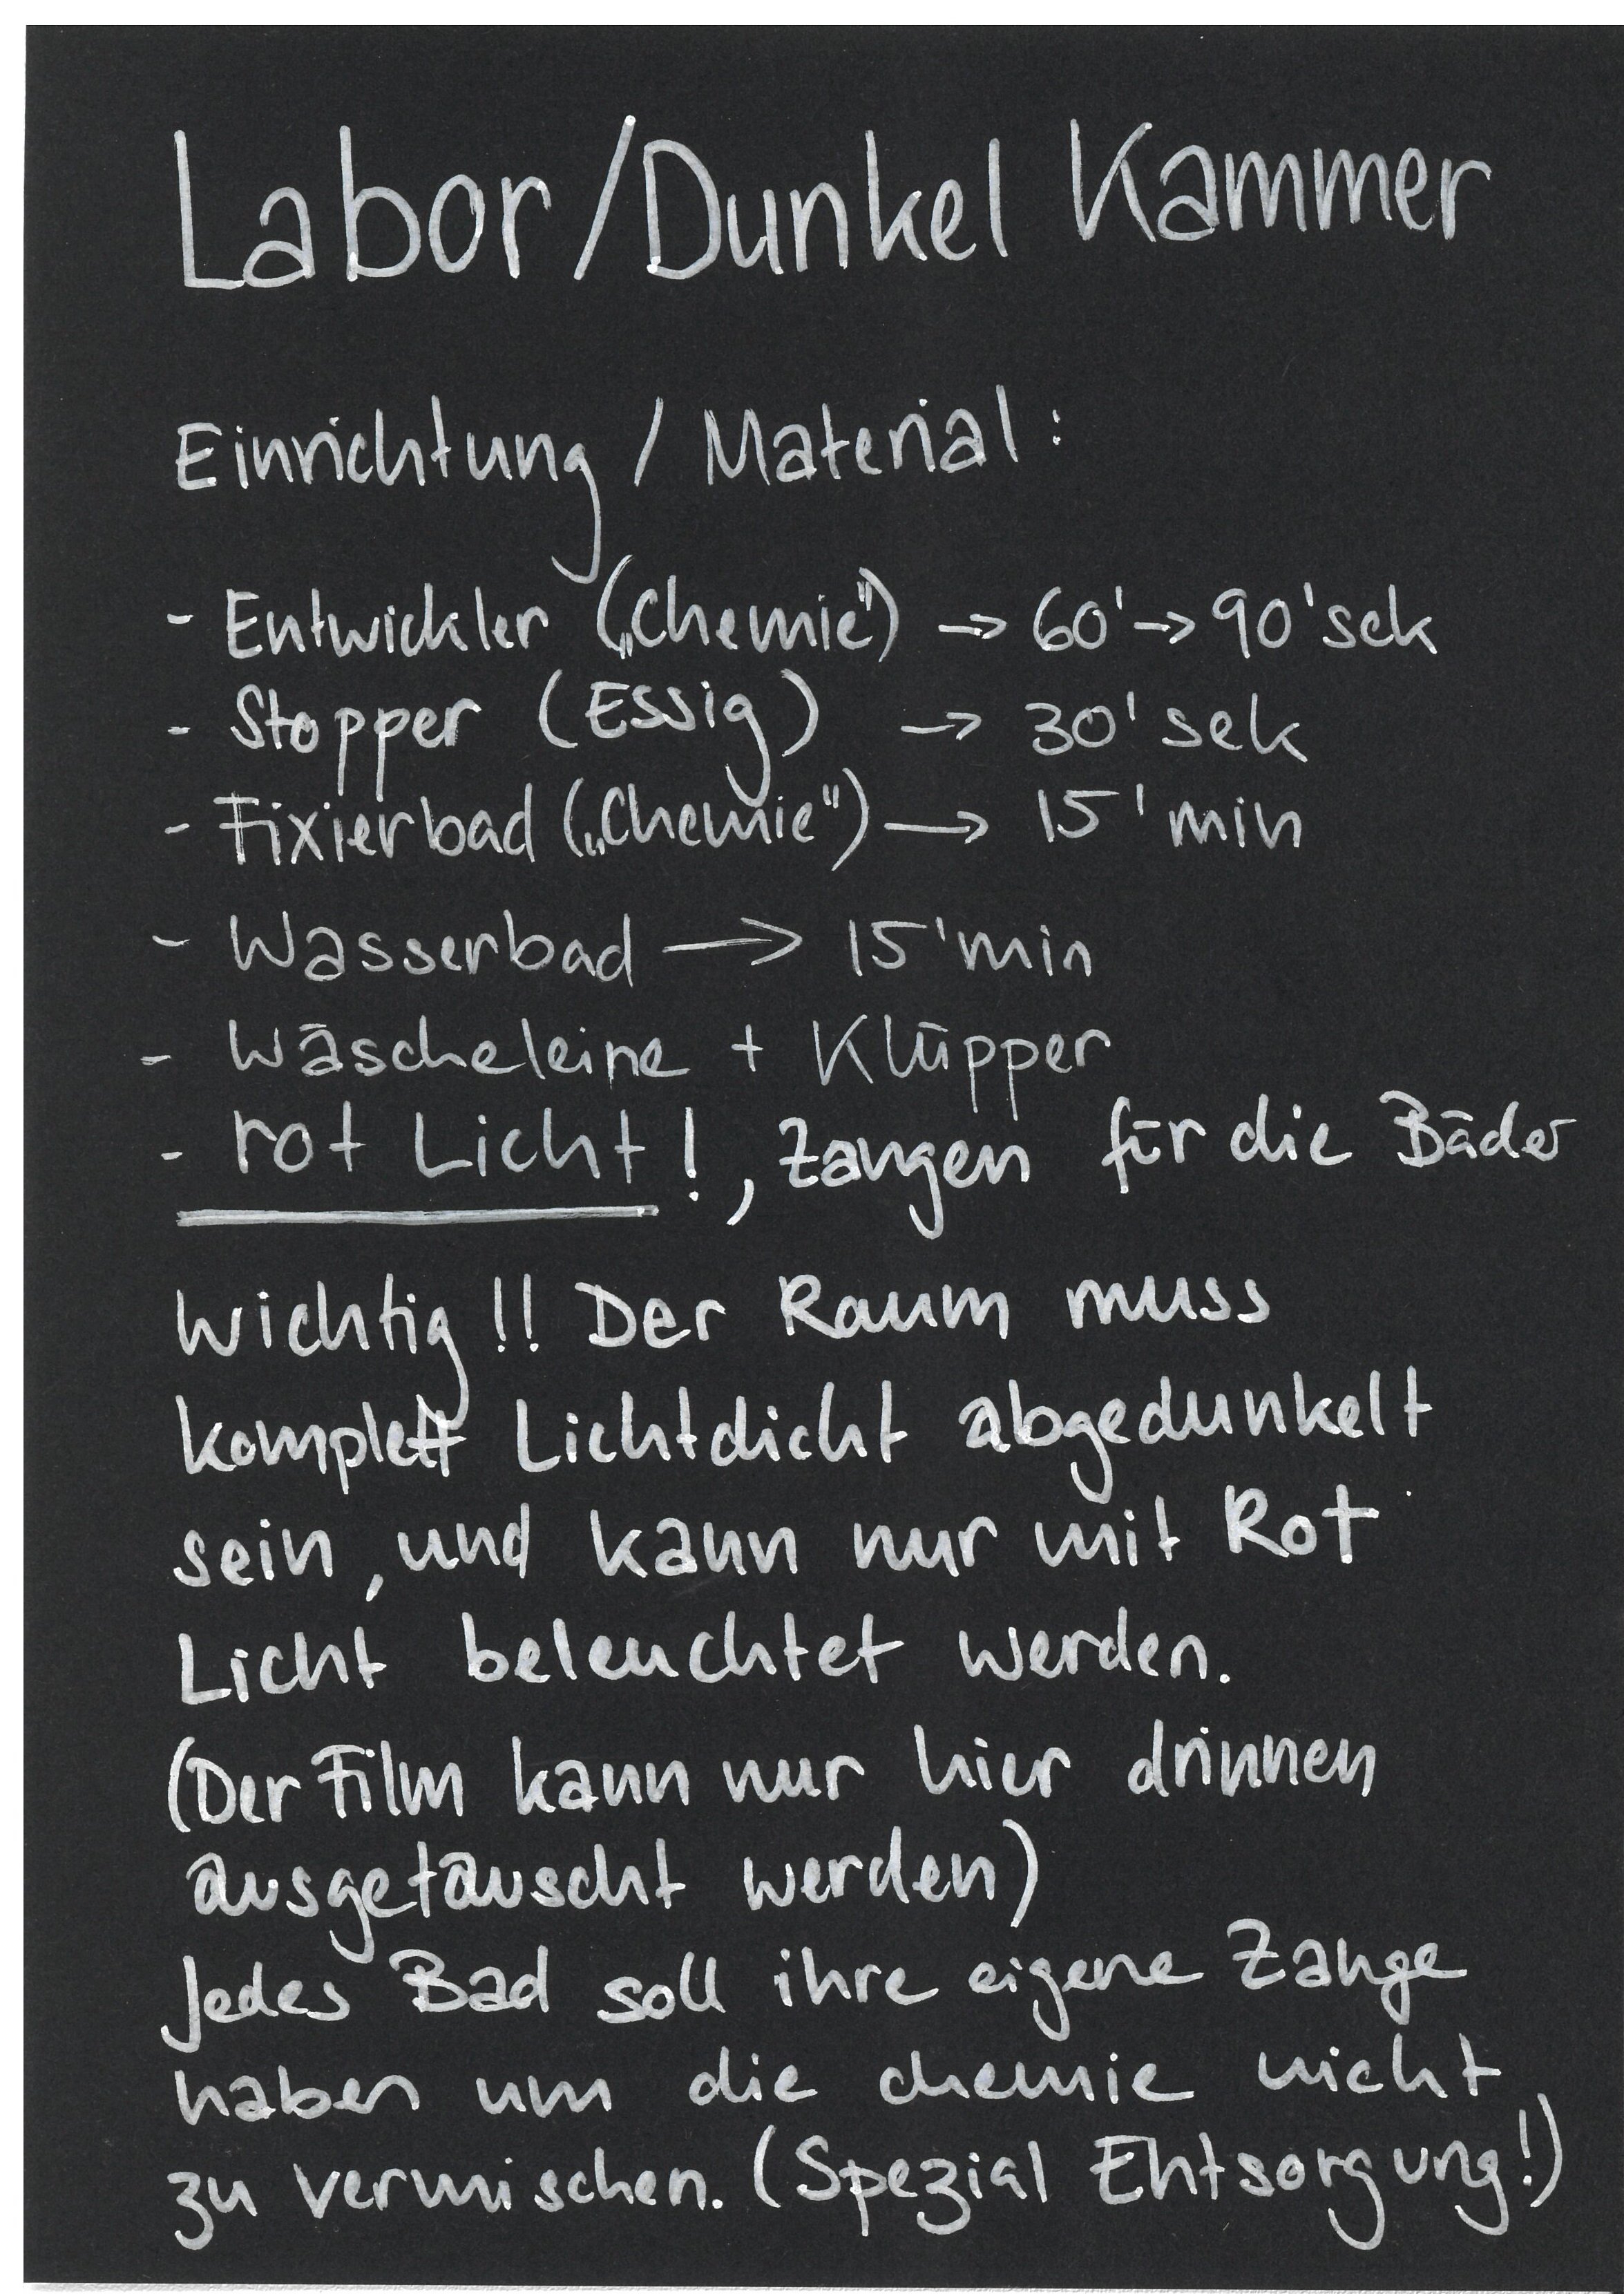 Labor/Dunkel Kammer
Einrichtung / Material:
- Entwickler („Chemie") → 60' → 90' sek
- Stopper (Essig) → 30' sek
- Fixierbad („Chemie") → 15' min
- Wasserbad → 15' min
- Wäscheleine + Klüpper
- rot Licht!, Zangen für die Bäder
Wichtig!! Der Raum muss
komplett Lichtdicht abgedunkelt
sein, und kann nur mit Rot
Licht beleuchtet werden.
(Der Film kann nur hier drinnen
ausgetauscht werden)
Jedes Bad soll ihre eigene Zange
haben um die chemie nicht
zu vermischen. (Spezial Entsorgung!)